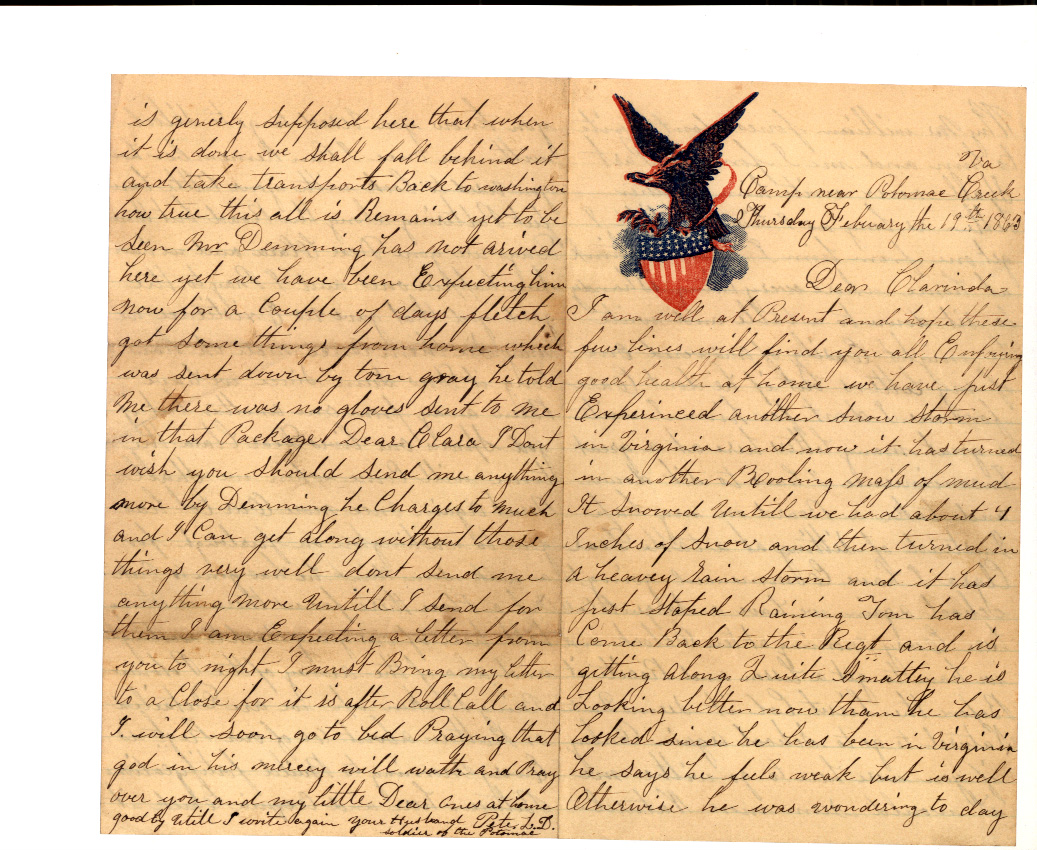 Va
Camp near Potomac Creek
Thursday Febuary the 19th 1863
Dear Clarinda
I am well at Present and hope these
few lines will find you all Enjoying
good health at home we have just
Experinced another snow storm
in Virginia and now it has turned
in another Booling mass of mud
It snowed Untill we had about 4
Inches of snow and then turned in
a heavey Rain storm and it has
just stoped Raining Tom has
Come Back to the Regt and is
getting along Quite Smattey he is
Looking better now tham he has
looked since he has been in Virginia
he says he feels weak but is well
Otherwise he was wondering to day
is generly supposed here that when
it is done we shall fall behind it
and take transports Back to washington
how true this all is Remains yet to be
seen Mr Demming has not arived
here yet we have been Expecting him
now for a Couple of days fletch
got some things from home which
was sent down by tom gray he told
me there was no gloves sent to me
in that Package Dear Clara I Dont
wish you should send me anything
more by Demming he Charges to Much
and I Can get along without those
things very well dont send me
anything more Untill I send for
them I am Expecting a letter from
you to night I must Bring my letter
to a Close for it is after Roll Call and
I will soon go to bed Praying that
god in his mercey will wath and Pray
over you and my little Dear ones at home
good by Utill I write again your Husband Peter L.D.
soldier of the Potomac